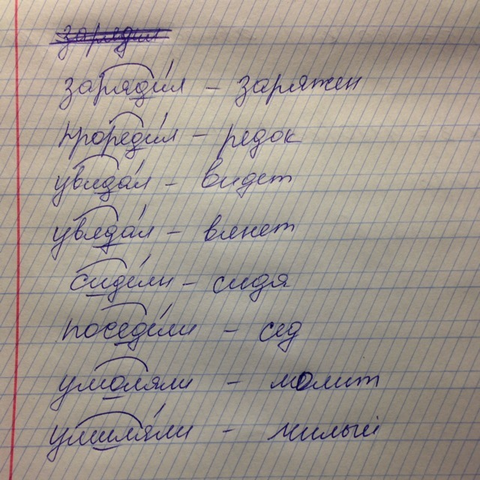 заряди́л – заряжен
прореди́л – редок
увида́л – видет
увяда́л – вянет
сиде́ли – сидя
поседе́ли – сед
умоляли – молит
умиля́ли – милый